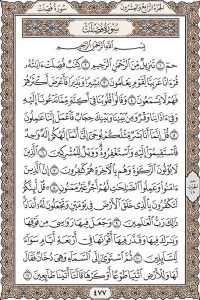 سُورَةُ فُصِّلَتْ الجزء الرابع والعشرون
سُورَةُ فُصِّلَتْ
بِسْمِ اللَّهِ الرَّحْمَٰنِ الرَّحِيمِ
حمٓ ۝١ تَنزِيلٌ مِّنَ الرَّحْمَٰنِ الرَّحِيمِ ۝٢ كِتَٰبٌ فُصِّلَتْ ءَايَٰتُهُۥ
قُرْءَانًا عَرَبِيًّا لِّقَوْمٍ يَعْلَمُونَ ۝٣ بَشِيرًا وَنَذِيرًا فَأَعْرَضَ أَكْثَرُهُمْ
فَهُمْ لَا يَسْمَعُونَ ۝٤ وَقَالُوا۟ قُلُوبُنَا فِىٓ أَكِنَّةٍ مِّمَّا تَدْعُونَآ إِلَيْهِ
وَفِىٓ ءَاذَانِنَا وَقْرٌ وَمِنۢ بَيْنِنَا وَبَيْنِكَ حِجَابٌ فَٱعْمَلْ إِنَّنَا عَٰمِلُونَ
۝٥ قُلْ إِنَّمَآ أَنَا۠ بَشَرٌ مِّثْلُكُمْ يُوحَىٰٓ إِلَىَّ أَنَّمَآ إِلَٰهُكُمْ إِلَٰهٌ وَٰحِدٌ
فَٱسْتَقِيمُوٓا۟ إِلَيْهِ وَٱسْتَغْفِرُوهُ وَوَيْلٌ لِّلْمُشْرِكِينَ ۝٦ ٱلَّذِينَ
لَا يُؤْتُونَ ٱلزَّكَوٰةَ وَهُم بِٱلْءَاخِرَةِ هُمْ كَٰفِرُونَ ۝٧ إِنَّ ٱلَّذِينَ
ءَامَنُوا۟ وَعَمِلُوا۟ ٱلصَّٰلِحَٰتِ لَهُمْ أَجْرٌ غَيْرُ مَمْنُونٍ ۝٨ قُلْ أَئِنَّكُمْ
لَتَكْفُرُونَ بِٱلَّذِى خَلَقَ ٱلْأَرْضَ فِى يَوْمَيْنِ وَتَجْعَلُونَ لَهُۥٓ أَندَادًا
ذَٰلِكَ رَبُّ ٱلْعَٰلَمِينَ ۝٩ وَجَعَلَ فِيهَا رَوَٰسِىَ مِن فَوْقِهَا
وَبَٰرَكَ فِيهَا وَقَدَّرَ فِيهَآ أَقْوَٰتَهَا فِىٓ أَرْبَعَةِ أَيَّامٍ سَوَآءً
لِّلسَّآئِلِينَ ۝١٠ ثُمَّ ٱسْتَوَىٰٓ إِلَى ٱلسَّمَآءِ وَهِىَ دُخَانٌ فَقَالَ
لَهَا وَلِلْأَرْضِ ٱئْتِيَا طَوْعًا أَوْ كَرْهًا قَالَتَآ أَتَيْنَا طَآئِعِينَ ۝١١
٤٧٧